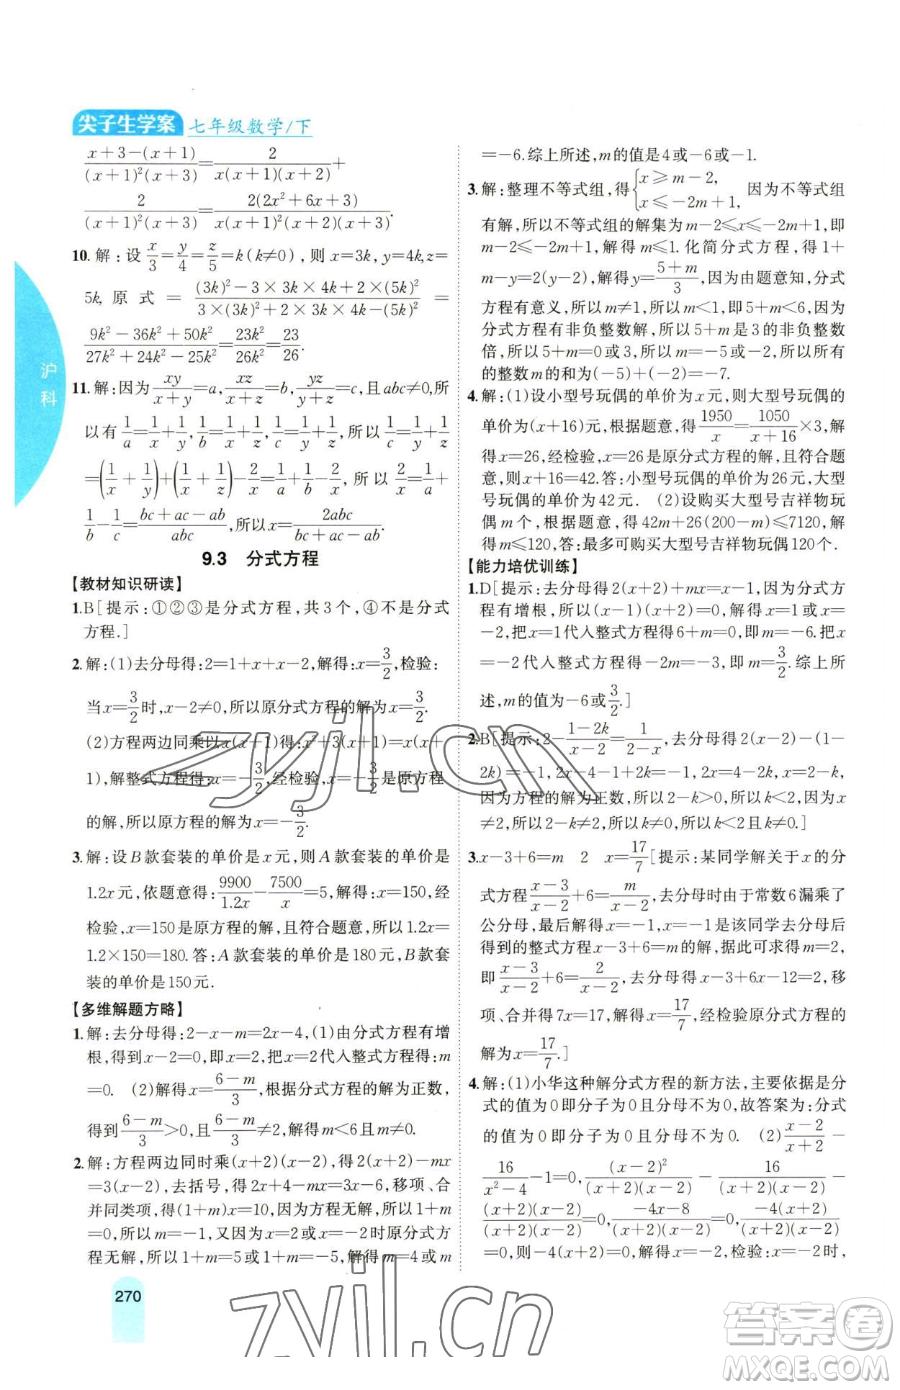 尖子生学案 七年级数学/下
沪科
\frac{x+3-(x+1)}{(x+1)^2(x+3)}=\frac{2}{x(x+1)(x+2)}+
\frac{2}{(x+1)^2(x+3)}=\frac{2(2x^2+6x+3)}{x(x+1)^2(x+2)(x+3)}.
10.解:设\frac{x}{3}=\frac{y}{4}=\frac{z}{5}=k(k≠0),则x=3k,y=4k,z=
5k,原式=\frac{(3k)^2-3×3k×4k+2×(5k)^2}{3×(3k)^2+2×3k×4k-(5k)^2}=
\frac{9k^2-36k^2+50k^2}{27k^2+24k^2-25k^2}=\frac{23k^2}{26k^2}=\frac{23}{26}.
11.解:因为\frac{xy}{x+y}=a,\frac{xz}{x+z}=b,\frac{yz}{y+z}=c,且abc≠0,所
以有\frac{1}{a}=\frac{1}{x}+\frac{1}{y},\frac{1}{b}=\frac{1}{x}+\frac{1}{z},\frac{1}{c}=\frac{1}{y}+\frac{1}{z},所以\frac{1}{a}+\frac{1}{b}
=(\frac{1}{x}+\frac{1}{y})+(\frac{1}{x}+\frac{1}{z})=\frac{2}{x}+\frac{1}{c},所以\frac{2}{x}=\frac{1}{a}+
\frac{1}{b}-\frac{1}{c}=\frac{bc+ac-ab}{abc},所以x=\frac{2abc}{bc+ac-ab}.
9.3 分式方程
【教材知识研读】
1.B[提示:①②③是分式方程,共3个,④不是分式
方程.]
2.解:(1)去分母得:2=1+x+x-2,解得:x=\frac{3}{2},检验:
当x=\frac{3}{2}时,x-2≠0,所以原分式方程的解为x=\frac{3}{2}.
(2)方程两边同乘以x(x+1)得:x^2+3(x+1)=x(x+
1),解整式方程得x=-\frac{3}{2},经检验,x=-\frac{3}{2}是原方程
的解,所以原方程的解为x=-\frac{3}{2}.
3.解:设B款套装的单价是x元,则A款套装的单价是
1.2x元,依题意得:\frac{9900}{1.2x}-\frac{7500}{x}=5,解得:x=150,经
检验,x=150是原方程的解,且符合题意,所以1.2x=
1.2×150=180.答:A款套装的单价是180元,B款套
装的单价是150元.
【多维解题方略】
1.解:去分母得:2-x-m=2x-4,(1)由分式方程有增
根,得到x-2=0,即x=2,把x=2代入整式方程得:m
=0. (2)解得x=\frac{6-m}{3},根据分式方程的解为正数,
得到\frac{6-m}{3}>0,且\frac{6-m}{3}≠2,解得m<6且m≠0.
2.解:方程两边同时乘(x+2)(x-2),得2(x+2)-mx
=3(x-2),去括号,得2x+4-mx=3x-6,移项、合
并同类项,得(1+m)x=10.因为方程无解,所以1+m
=0,所以m=-1.又因为x=2或x=-2时原分式方
程无解,所以1+m=5或1+m=-5,解得m=4或m
=-6.综上所述,m的值是4或-6或-1.
3.解:整理不等式组,得{x≥m-2, x≤-2m+1, 因为不等式组
有解,所以不等式组的解集为m-2≤x≤-2m+1,即
m-2≤-2m+1,解得m≤1.化简分式方程,得1+
m-y=2(y-2),解得y=\frac{5+m}{3}.因为由题意知,分式
方程有意义,所以m≠1,所以m<1,即m-1<0.因为
分式方程有非负整数解,所以5+m是3的非负整数
倍,所以5+m=0或3,所以m=-5或-2,所以所有
的整数m的和是(-5)+(-2)=-7.
4.解:(1)设小型号玩偶的单价为x元,则大型号玩偶的
单价为(x+16)元,根据题意,得\frac{1950}{x}=\frac{1050}{x+16}×3,解
得x=26,经检验,x=26是原分式方程的解,且符合题
意,则x+16=42.答:小型号玩偶的单价为26元,大型
号玩偶的单价为42元. (2)设购买大型号吉祥物玩
偶m个,根据题意,得42m+26(200-m)≤7120,解
得m≤120,答:最多可购买大型号吉祥物玩偶120个.
【能力培优训练】
1.D[提示:去分母得2(x+2)+mx=x-1,因为分式方
程有增根,所以(x-1)(x+2)=0,解得x=1或x=
-2,把x=1代入整式方程得6+m=0,即m=-6;把x
=-2代入整式方程得-2m=-3,即m=\frac{3}{2}.综上所
述,m的值为-6或\frac{3}{2}.]
2.B[提示:2-\frac{1-2k}{x-2}=\frac{1}{2-x},去分母得2(x-2)-(1-
2k)=-1,2x-4-1+2k=-1,2x=4-2k,x=2-k,
因为方程的解为正数,所以2-k>0,所以k<2,因为x
≠2,所以2-k≠2,所以k≠0,所以k<2且k≠0.]
3.x-3+6=m 2 x=\frac{17}{7}[提示:某同学解关于x的分
式方程\frac{x-3}{x-2}+6=\frac{m}{x-2}去分母时由于常数6漏乘了
公分母,最后解得x=-1,x=-1是该同学去分母后
得到的整式方程x-3+6=m的解,解得m=2,
即\frac{x-3}{x-2}+6=\frac{2}{x-2},去分母得x-3+6x-12=2,移
项、合并得7x=17,解得x=\frac{17}{7},经检验原分式方程的
解为x=\frac{17}{7}.]
4.解:(1)小华这种解分式方程的新方法,主要依据是分
式的值为0即分子为0且分母不为0.故答案为:分式
的值为0即分子为0且分母不为0. (2)\frac{x-2}{x+2}-
\frac{16}{x^2-4}-1=0,\frac{(x-2)^2}{(x+2)(x-2)}-\frac{16}{(x+2)(x-2)}-
\frac{(x+2)(x-2)}{(x+2)(x-2)}=0,\frac{-4x-8}{(x+2)(x-2)}=0,\frac{-4(x+2)}{(x+2)(x-2)}
=0,则-4(x+2)=0,解得x=-2,检验:x=-2时,
270
zyjl.cn
zyjl.cn
答案圈
MXQE.COM